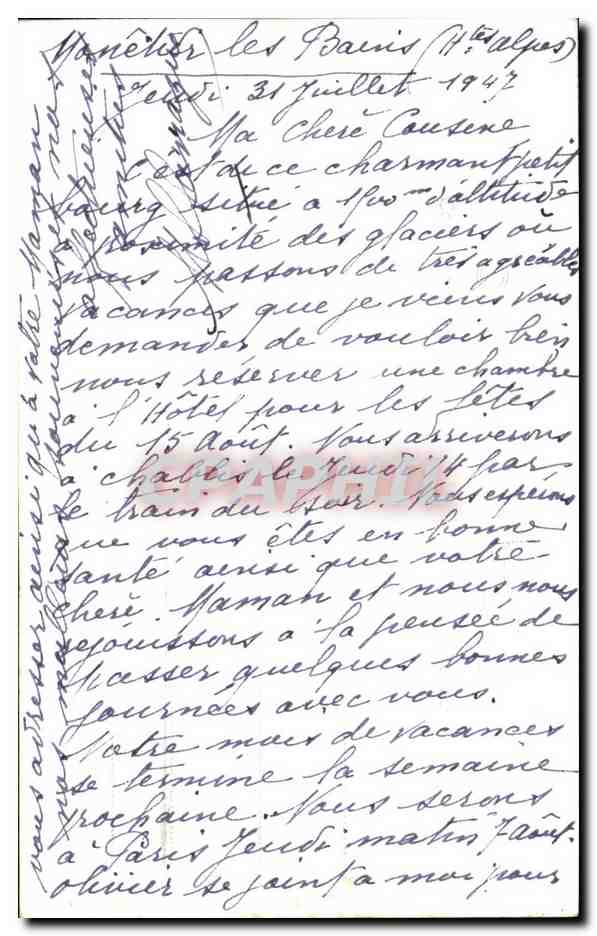 Monêtier les Bains (Htes Alpes)
Jeudi 31 Juillet 1947
Ma Chère Cousine
C'est de ce charmant petit
bourg situé à 1500 m d'altitude
à proximité des glaciers où
nous passons de très agréables
vacances que je viens vous
demander de vouloir bien
nous réserver une chambre
à l'Hôtel pour les fêtes
du 15 Août. Nous arriverons
à Chablis le Jeudi 14 par
le train du soir. Nous espérons
que vous êtes en bonne
santé ainsi que votre
chère Maman et nous nous
réjouissons à la pensée de
passer quelques bonnes
journées avec vous.
Notre mois de vacances
se termine la semaine
prochaine. Nous serons
à Paris Jeudi matin 7 Août.
Olivier se joint à moi pour
vous adresser ainsi qu'à votre Maman
nos meilleurs souvenirs et nos
affectueuses
pensées
CPAPHIL